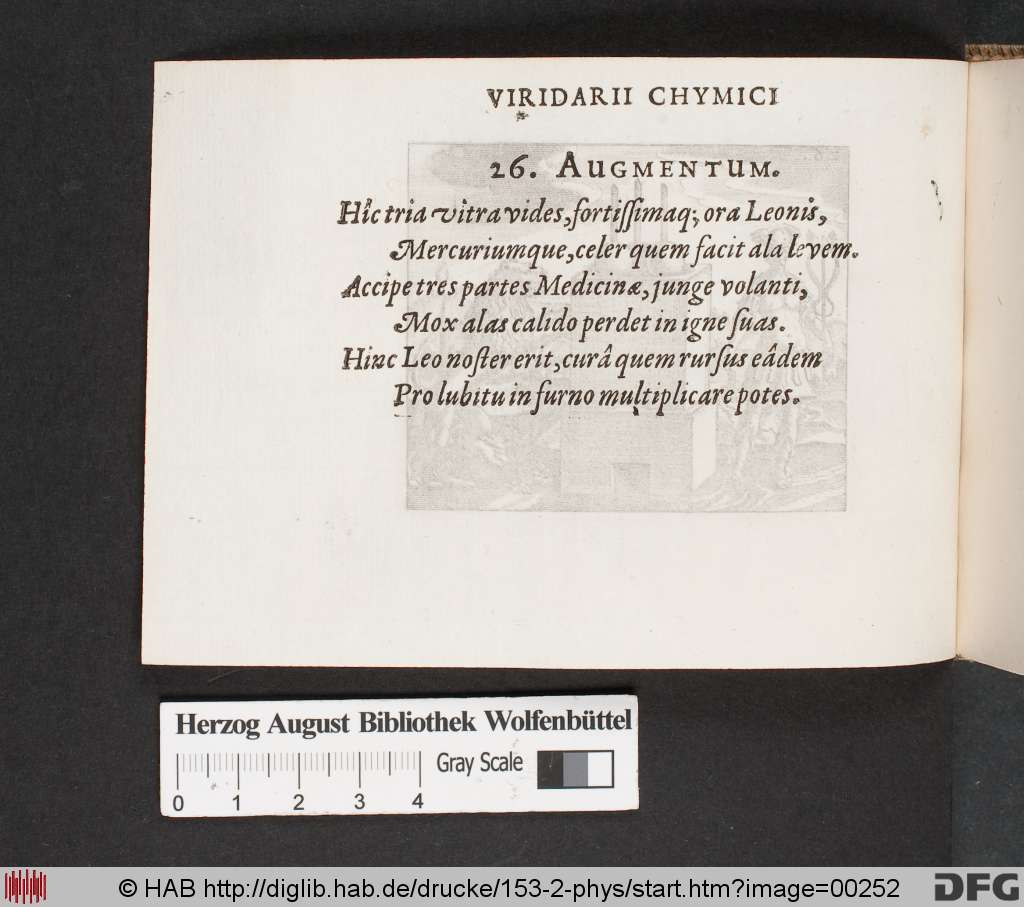 VIRIDARII CHYMICI
26. AUGMENTUM.
Hîc tria vitra vides, fortiſſimaq; ora Leonis,
Mercuriumque, celer quem facit ala levem.
Accipe tres partes Medicinæ, junge volanti,
Mox alas calido perdet in igne ſuas.
Hinc Leo noſter erit, curâ quem rurſus eâdem
Pro lubitu in furno multiplicare potes.
Herzog August Bibliothek Wolfenbüttel
Gray Scale
0 1 2 3 4
© HAB http://diglib.hab.de/drucke/153-2-phys/start.htm?image=00252
DFG